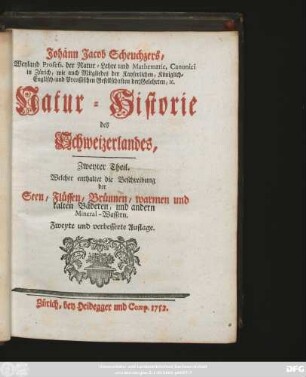 Johann Jacob Scheuchzers,
Weyland Professs. der Natur-Lehre und Mathematic, Canonici
in Zürich, wie auch Mitgliedes der Kayserlichen, Königlich-
Englisch und Preussischen Gesellschaften der Gelehrten, ꝛc.
Natur-Historie
des
Schweizerlandes,
Zweyter Theil.
Welcher enthaltet die Beschreibung
der
Seen, Flüssen, Brünnen, warmen und
kalten Bäderen, und andern
Mineral-Wassern.
Zweyte und verbesserte Auflage.
Zürich, bey Heidegger und Comp. 1752.
DFG